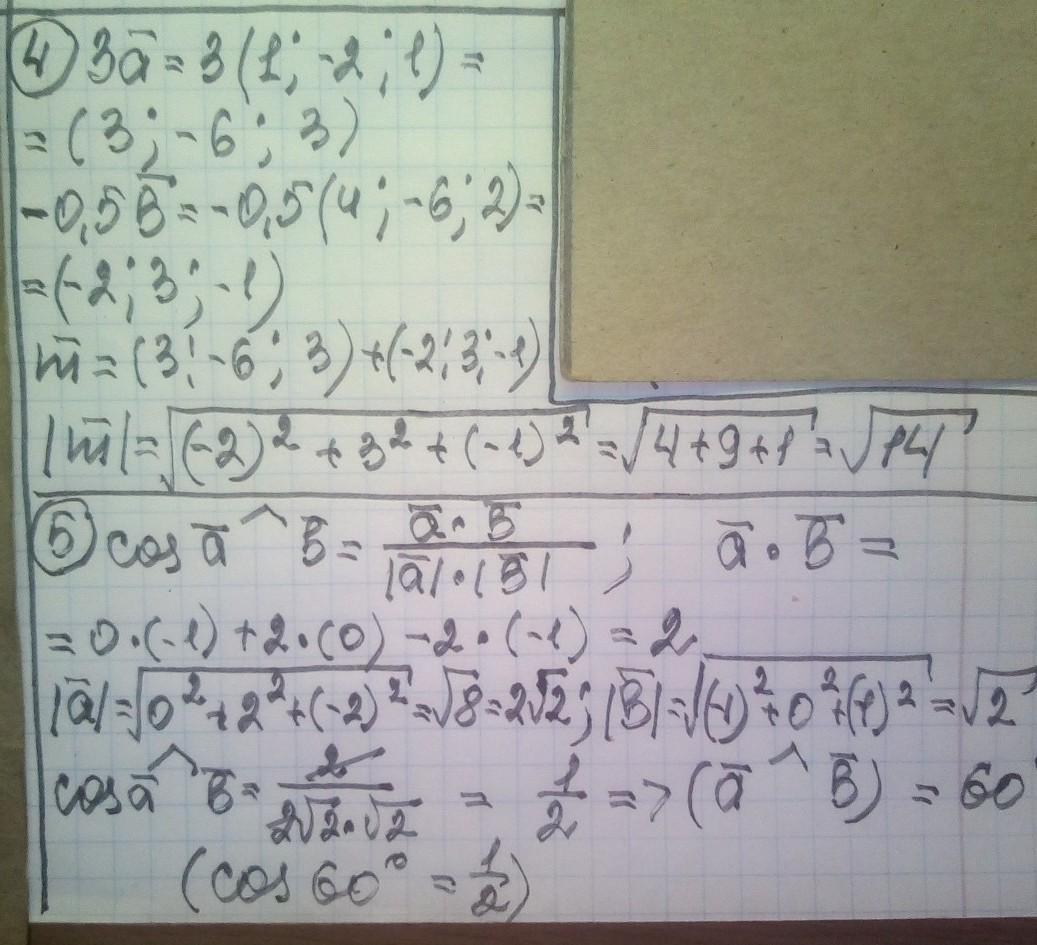 4) 3a̅ = 3(1; -2; 1) =
= (3; -6; 3)
-0,5B̅ = -0,5(4; -6; 2) =
= (-2; 3; -1)
m̅ = (3; -6; 3) + (-2; 3; -1)
|m̅| = √((-2)² + 3² + (-1)²) = √(4+9+1) = √14
5) cos a̅ ^ B̅ = a̅·B̅ / |a̅|·|B̅| ; a̅·B̅ =
= 0·(-1) + 2·(0) - 2·(-1) = 2.
|a̅| = √(0²+2²+(-2)²) = √8 = 2√2; |B̅| = √((-1)²+0²+(-1)²) = √2
cos a̅ ^ B̅ = 2 / 2√2·√2 = 1/2 => (a̅ ^ B̅) = 60
(cos 60° = 1/2)